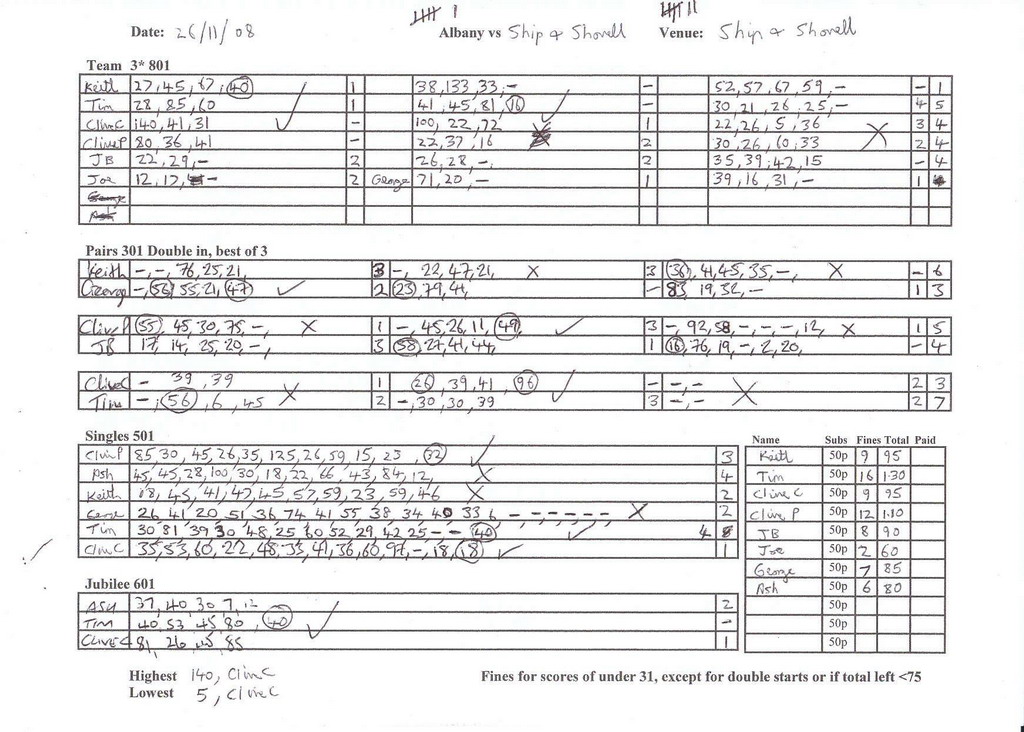 Date: 26/11/08 Albany vs Ship & Shovell Venue: Ship & Shovell
Team 3* 801
Keith 27, 45, 67, 40 1 38, 133, 33, - - 52, 57, 67, 59, - - 1
Tim 28, 85, 60 1 41, 45, 81, 16 - 30, 21, 26, 25, - 4 5
Clive C 140, 41, 31 - 100, 22, 72 1 22, 26, 5, 36 3 4
Clive P 80, 36, 41 - 22, 37, 16 2 30, 26, 60, 33 2 4
JB 22, 29, - 2 26, 28, -, 2 35, 39, 42, 15 - 4
Joe 12, 17, - 2 George 71, 20, - 1 39, 16, 31, - 1
Pairs 301 Double in, best of 3
Keith -, -, 76, 25, 21, 3 -, 22, 47, 21, X 3 (36), 41, 45, 35, -, X - 6
George -, (56) 55, 21, (47) ✓ 2 (23), 79, 41, - 83, 19, 32, - 1 3
Clive P (55), 45, 30, 75, -, X 1 -, 45, 26, 11, (49) ✓ 3 -, 92, 58, -, -, -, 12, X 1 5
JB 17, 14, 25, 20, -, 3 (58), 27, 41, 44, 1 (16), 76, 19, -, 2, 20, - 4
Clive C - 39, 39 X 1 (26), 39, 41, (96) ✓ - -, - X 2 3
Tim -, (56), 6, 45 2 -, 30, 30, 39 3 -, - 2 7
Singles 501
Clive P 85, 30, 45, 26, 35, 125, 26, 59, 15, 23, (32) ✓ 3
Ash 45, 45, 28, 100, 30, 18, 22, 66, 43, 84, 12, X 4
Keith 18, 45, 41, 47, 45, 57, 59, 23, 59, 46 X 2
George 26 41 20 51 36 74 41 55 38 34 40 33 6 - - - - - - X 2
Tim 30 81 39 30 48, 25 60 52 29, 42 25 - - (40) ✓ 4
Clive C 35, 53, 60, 22, 48, 33, 41, 36, 60, 97, -, 18, (18) ✓ 1
Name Subs Fines Total Paid
Keith 50p 9 95
Tim 50p 16 1.30
Clive C 50p 9 95
Clive P 50p 12 1.10
JB 50p 8 90
Joe 50p 2 60
George 50p 7 85
Ash 50p 6 80
50p
50p
50p
Jubilee 601
ASH 37, 40, 30 7, 12 2
TIM 40, 53 45 80, (40) ✓ -
CLIVE C 81, 26, 85 1
Highest 140, Clive C
Lowest 5, Clive C
Fines for scores of under 31, except for double starts or if total left <75